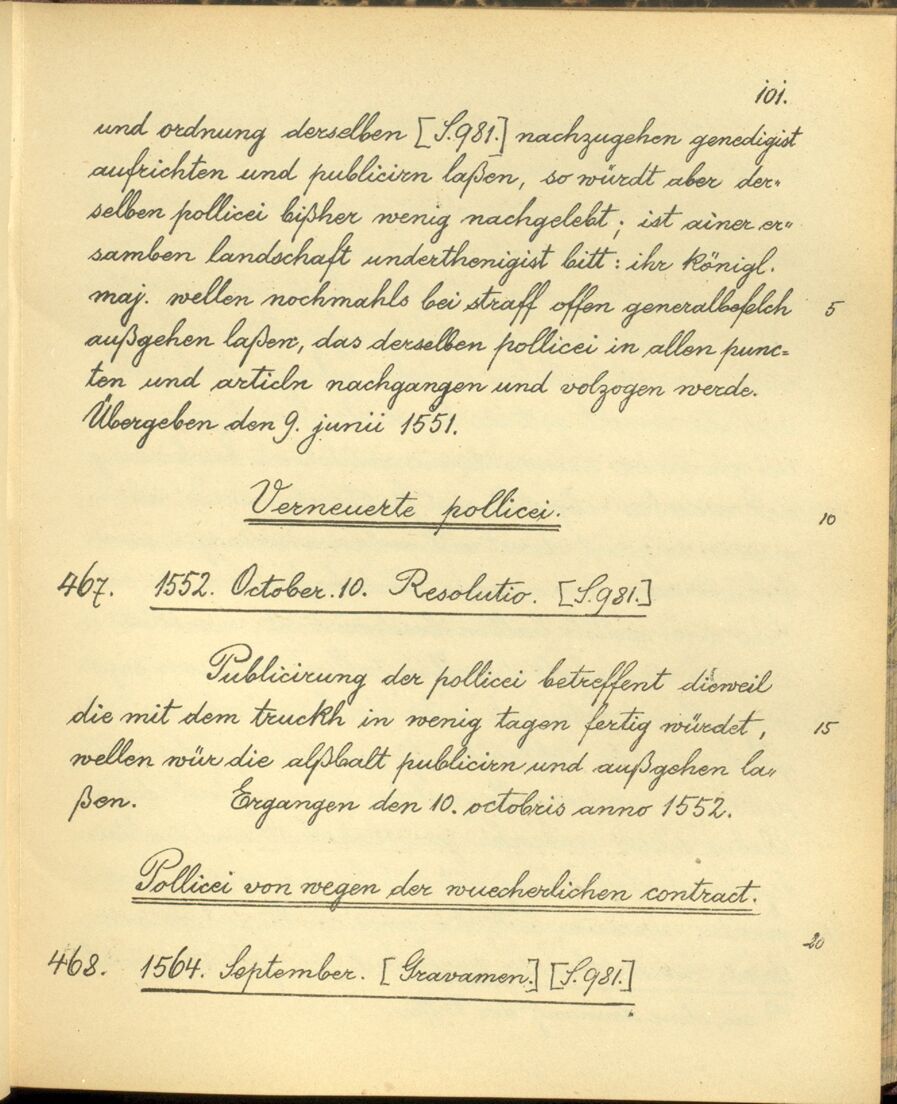 101.
und ordnung derselben [S.981.] nachzugehen genedigist
aufrichten und publicirn laßen, so würdt aber der„
selben pollicei bißher wenig nachgelebt; ist ainer er„
samben landschaft underthenigist bitt: ihr königl.
maj. wellen nochmahls bei straff offen generalbefelch 5
außgehen laßen, das derselben pollicei in allen punc=
ten und articln nachgangen und volzogen werde.
Übergeben den 9. junii 1551.
Verneuerte pollicei. 10
467. 1552. October. 10. Resolutio. [S.981.]
Publicirung der pollicei betreffent dieweil
die mit dem truckh in wenig tagen fertig würdet, 15
wellen wür die alßbalt publicirn und außgehen la„
ßen. Ergangen den 10. octobris anno 1552.
Pollicei von wegen der wuecherlichen contract.
20
468. 1564. September. [Gravamen.] [S.981.]